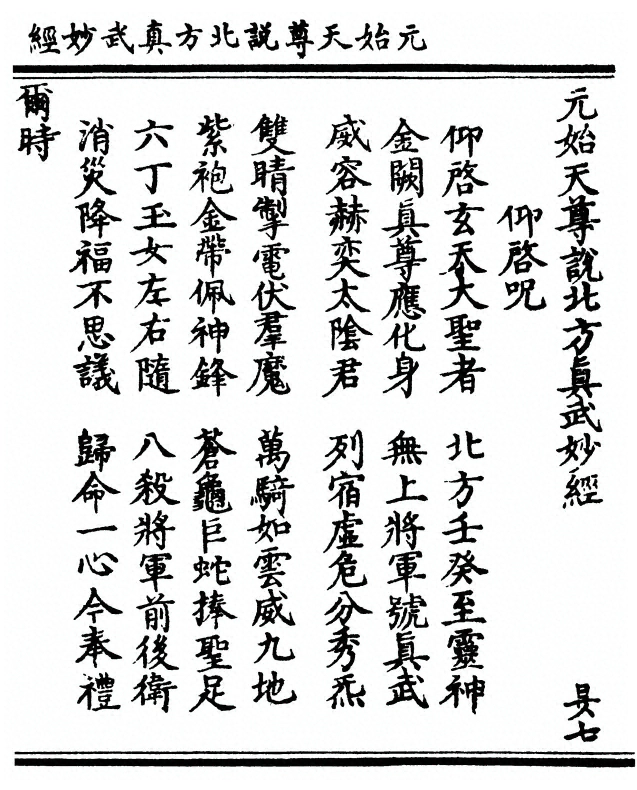 元始天尊說北方真武妙經
元始天尊說北方眞武妙經 㫷七
仰啓咒
仰啓玄天大聖者 北方壬癸至靈神
金闕眞尊應化身 無上將軍號眞武
威容赫奕太陰君 列宿虛危分秀炁
雙睛掣電伏羣魔 萬騎如雲威九地
紫袍金帶佩神鋒 蒼龜巨蛇捧聖足
六丁玉女左右隨 八殺將軍前後衛
消災降福不思議 歸命一心今奉禮
爾時